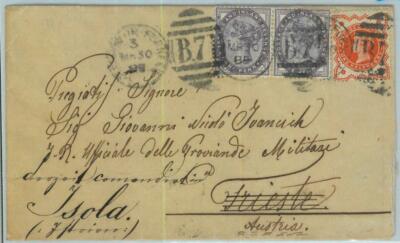 3
MR 30
88
B.7
B.7
Pregiatis. Signore
Sig. Giovanni Nicolò Ivancich
I. R. Uffiziale delle Provviande Militari
Trieste
Isola.
(Istrien)
Austria.